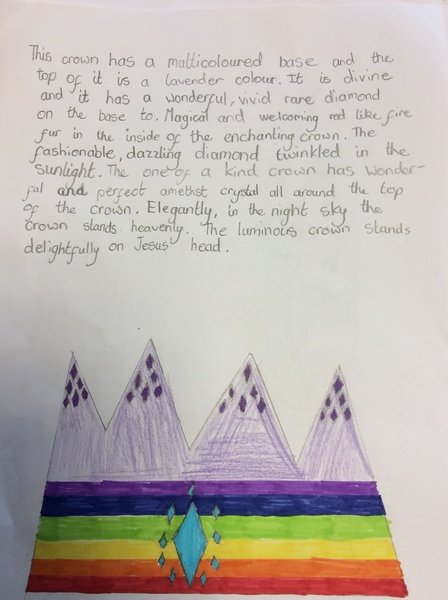 This crown has a multicoloured base and the
top of it is a lavender colour. It is divine
and it has a wonderful, vivid rare diamond
on the base to. Magical and welcoming red like fire
fur in the inside of the enchanting crown. The
fashionable, dazzling diamond twinkled in the
Sunlight. The one of a kind crown has wonder-
ful and perfect amethst crystal all around the top
of the crown. Elegantly, in the night sky the
crown stands heavenly. The luminous crown stands
delightfully on Jesus' head.